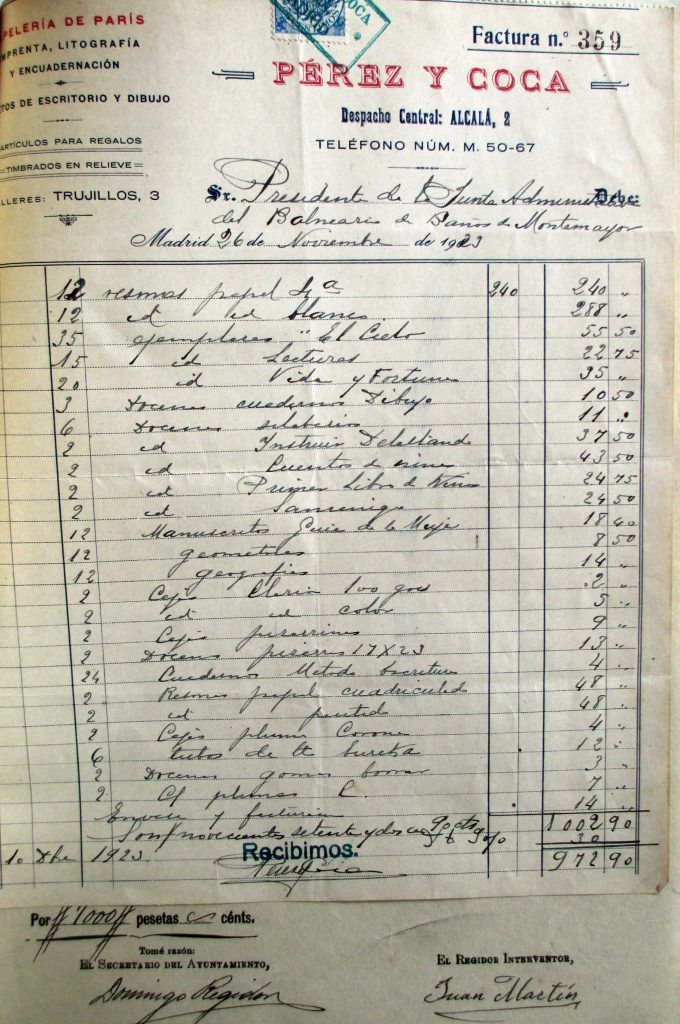 PELERÍA DE PARÍS
MPRENTA, LITOGRAFÍA
Y ENCUADERNACIÓN
TOS DE ESCRITORIO Y DIBUJO
ARTÍCULOS PARA REGALOS
TIMBRADOS EN RELIEVE
LLERES: TRUJILLOS, 3
COCA
Factura n.° 359
PÉREZ Y COCA
Despacho Central: ALCALÁ, 2
TELÉFONO NÚM. M. 50-67
Sr. Presidente de la Junta Administrativa Debe:
del Balneario de Baños de Montemayor
Madrid 26 de Noviembre de 1923
12 resmas papel 4ª 240 240 "
12 id id blanco 288 "
35 ejemplares " El Cielo 55 50
15 id Lecturas 22 75
20 id Vida y Fortuna 35 "
3 Docenas cuadernos Dibujo 10 50
6 Docenas silabarios 11 "
2 id Instruir Deleitando 37 50
2 id Cuentos de 43 50
2 id Primer Libro de 24 75
2 id 24 50
12 Manuscritos Guia de la Mujer 18 40
12 geometrias 8 50
12 geografias 14 "
2 Cajas 100 2 "
2 id id color 5 "
2 Cajas pizarrines 9 "
2 Docenas pizarras 17 X 23 13 "
24 Cuadernos Metodo Escritura 4 "
2 Resmas papel cuadriculado 48 "
2 id pautado 48 "
2 Cajas plumas Corona 4 "
6 tubos de tta Eureka 12 "
2 Docenas gomas borrar 3 "
2 Cj plumas 7 "
Envase y facturacion 14 "
1002 90
Son novecientas setenta y dos con 90 cts 30
10 Dbre 1923. Recibimos. 972 90
Perez y Coca
Por #1000# pesetas cénts.
Tomé razón:
EL SECRETARIO DEL AYUNTAMIENTO, EL REGIDOR INTERVENTOR,
Domingo Regidor Juan Martín